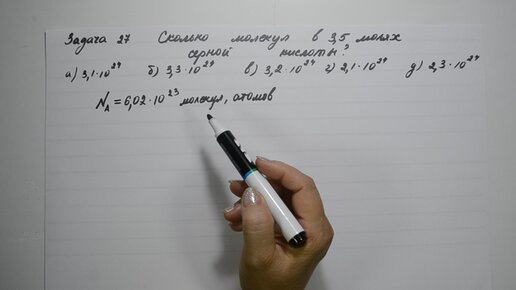 Задача 27 Сколько молекул в 3,5 молях
серной кислоты?
а) 3,1·10²⁴ б) 3,3·10²⁴ в) 3,2·10²⁴ г) 2,1·10²⁴ д) 2,3·10²⁴
N_A = 6,02·10²³ молекул, атомов